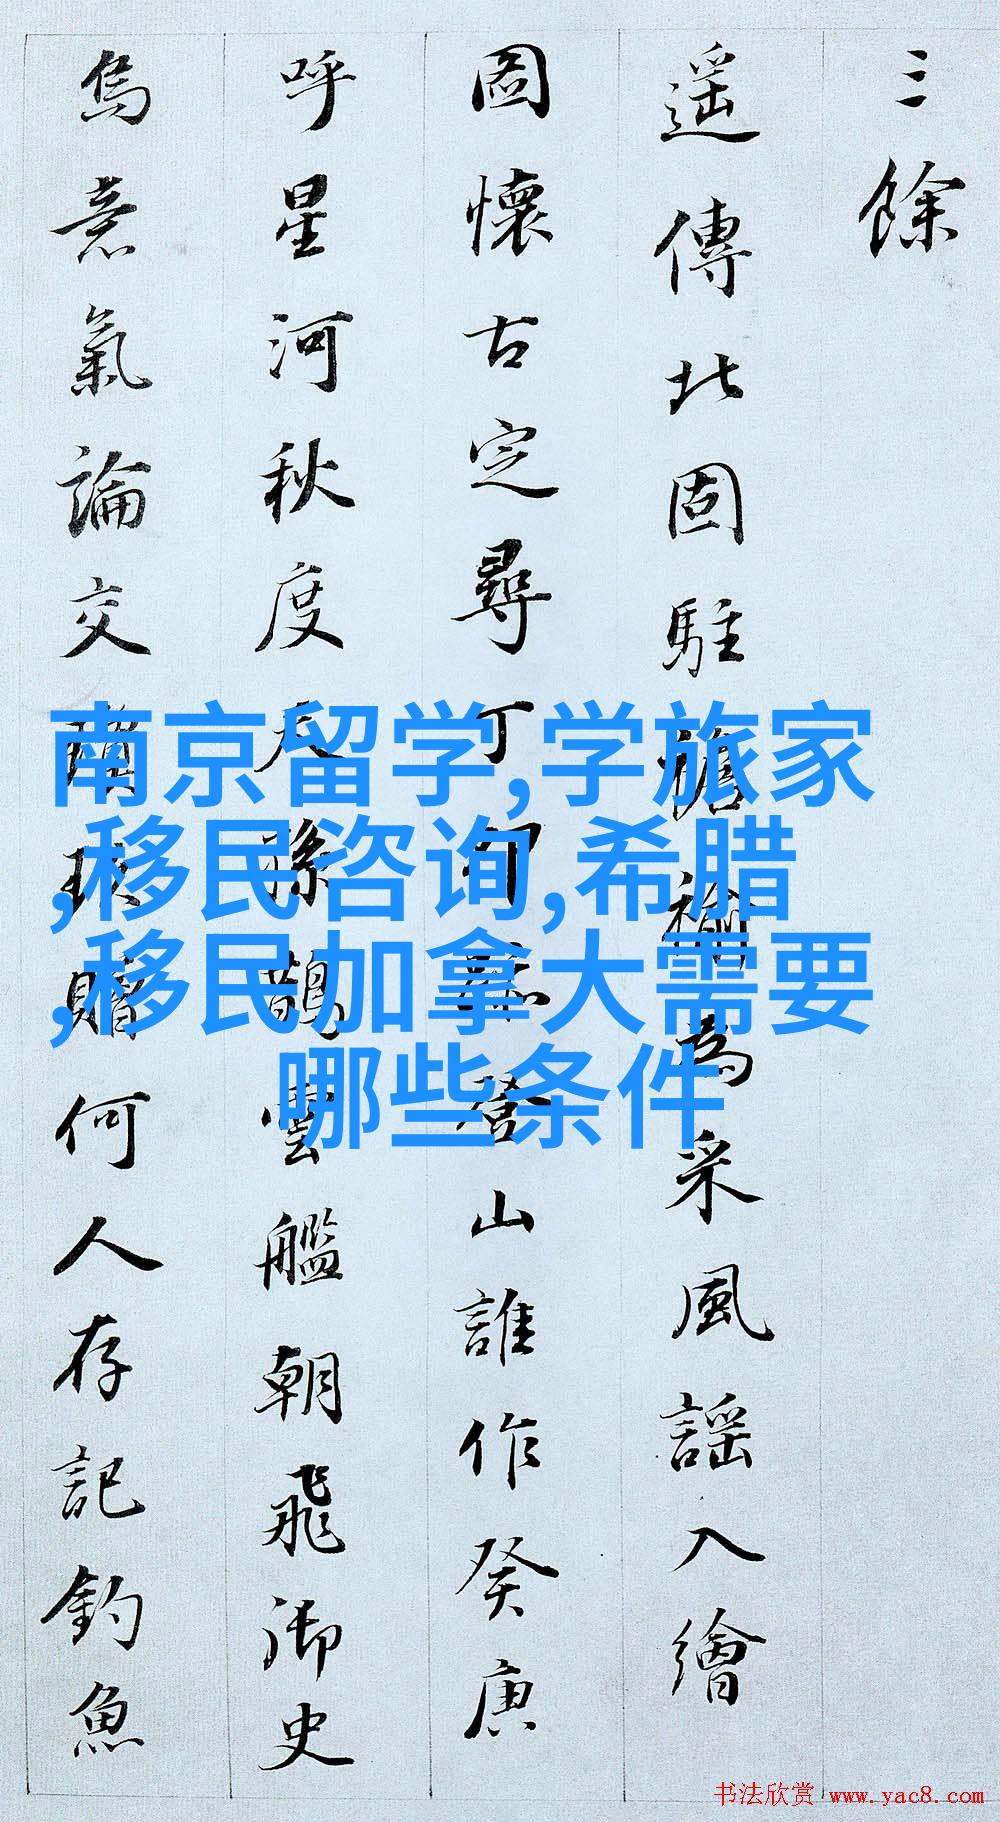 三餘
遥傳北固駐襜褕為采風謡入繪
圖懷古定尋丁卯登山誰作癸庚
呼星河秋度天孫鵲雲艦朝飛御史
烏意氣論交瓊玖贈何人存記釣魚
南京留学,学旅家
,移民咨询,希腊
,移民加拿大需要
哪些条件
书法欣赏 www.yac8.com